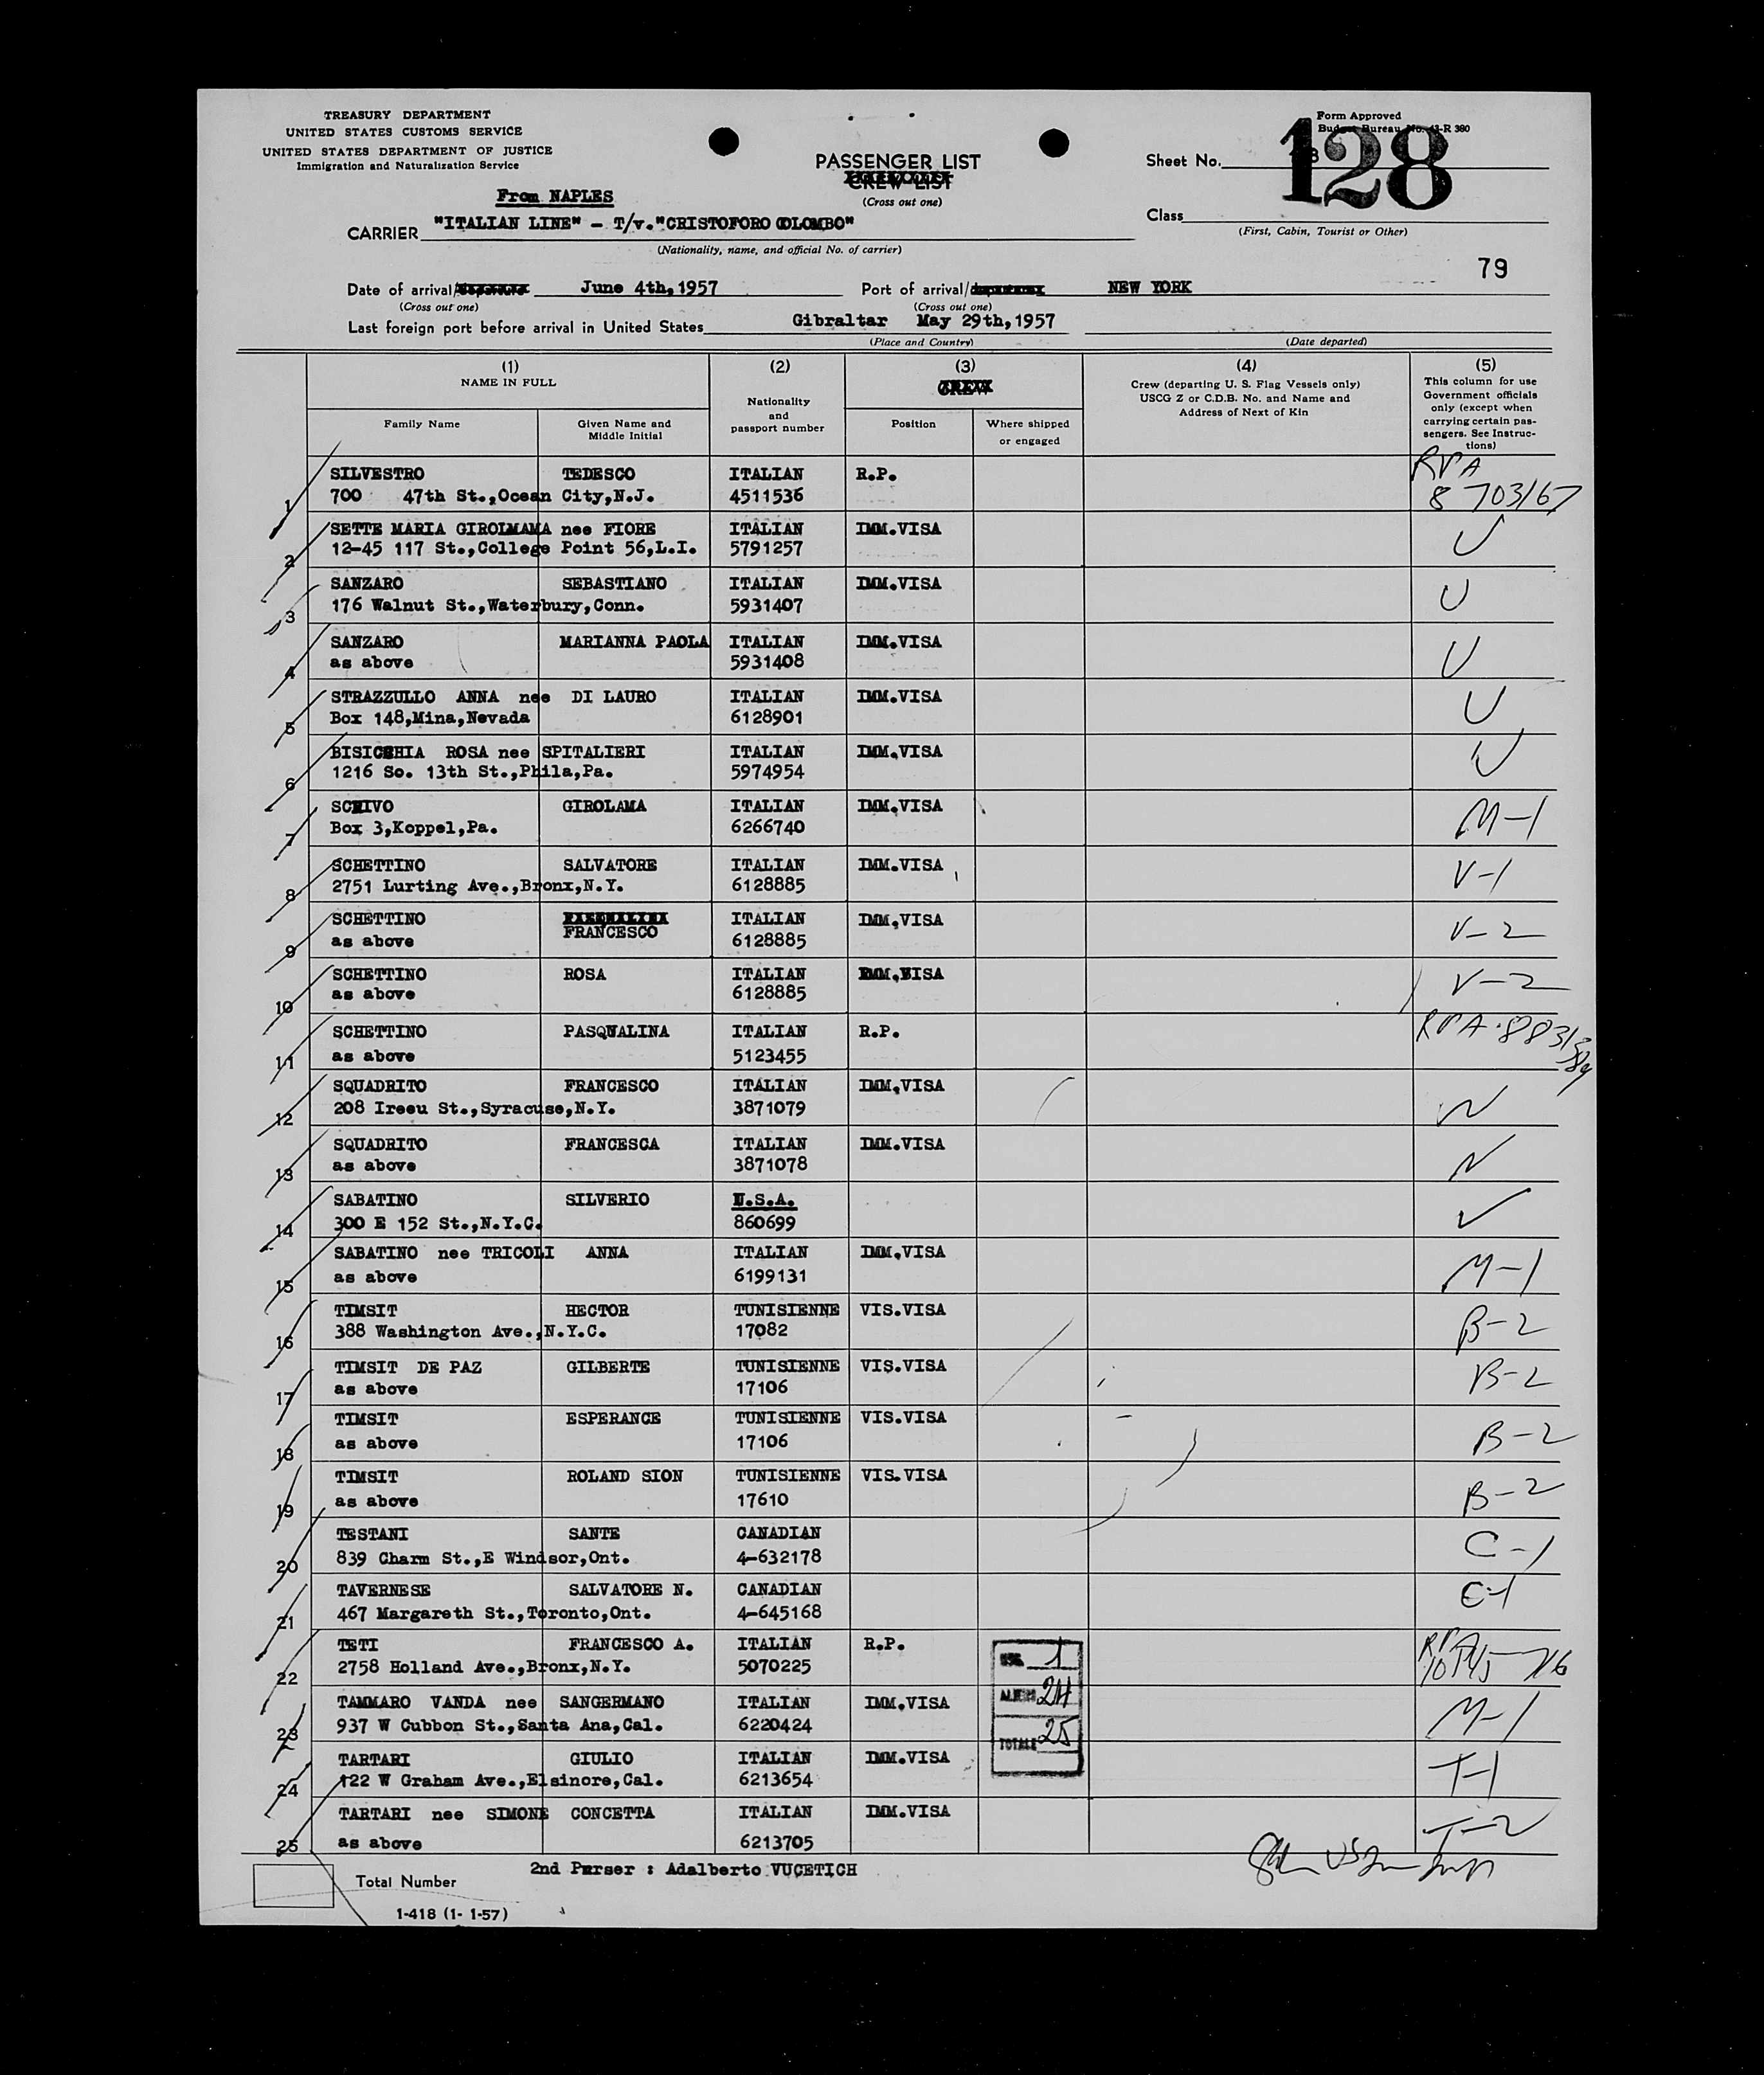 TREASURY DEPARTMENT
UNITED STATES CUSTOMS SERVICE
UNITED STATES DEPARTMENT OF JUSTICE
Immigration and Naturalization Service
Form Approved
Budget Bureau No. 43-R 380
PASSENGER LIST
CREW LIST
(Cross out one)
Sheet No.
128
From NAPLES
CARRIER "ITALIAN LINE" - T/v."CRISTOFORO COLOMBO"
(Nationality, name, and official No. of carrier)
Class
(First, Cabin, Tourist or Other)
79
Date of arrival/ June 4th,1957 Port of arrival/ NEW YORK
(Cross out one) (Cross out one)
Last foreign port before arrival in United States Gibraltar May 29th,1957
(Place and Country) (Date departed)
(1) (2) (3) (4) (5)
NAME IN FULL
Family Name
Given Name and Middle Initial
Nationality and passport number
CREW
Position
Where shipped or engaged
Crew (departing U. S. Flag Vessels only)
USCG Z or C.D.B. No. and Name and
Address of Next of Kin
This column for use
Government officials
only (except when
carrying certain pas-
sengers. See Instruc-
tions)
1 SILVESTRO TEDESCO ITALIAN R.P. RPA
700 47th St.,Ocean City,N.J. 4511536 8703167
2 SETTE MARIA GIROLMAMA nee FIORE ITALIAN IMM.VISA U
12-45 117 St.,College Point 56,L.I. 5791257
3 SANZARO SEBASTIANO ITALIAN IMM.VISA U
176 Walnut St.,Waterbury,Conn. 5931407
4 SANZARO MARIANNA PAOLA ITALIAN IMM.VISA U
as above 5931408
5 STRAZZULLO ANNA nee DI LAURO ITALIAN IMM.VISA U
Box 148,Mina,Nevada 6128901
6 BISICCHIA ROSA nee SPITALIERI ITALIAN IMM.VISA U
1216 So. 13th St.,Phila,Pa. 5974954
7 SCRIVO GIROLAMA ITALIAN IMM.VISA M-1
Box 3,Koppel,Pa. 6266740
8 SCHETTINO SALVATORE ITALIAN IMM.VISA V-1
2751 Lurting Ave.,Bronx,N.Y. 6128885
9 SCHETTINO ITALIAN IMM.VISA V-2
as above FRANCESCO 6128885
10 SCHETTINO ROSA ITALIAN IMM.VISA V-2
as above 6128885
11 SCHETTINO PASQUALINA ITALIAN R.P. RPA
as above 5123455
12 SQUADRITO FRANCESCO ITALIAN IMM.VISA N
208 Ireeu St.,Syracuse,N.Y. 3871079
13 SQUADRITO FRANCESCA ITALIAN IMM.VISA N
as above 3871078
14 SABATINO SILVERIO U.S.A.
300 E 152 St.,N.Y.C. 860699
15 SABATINO nee TRICOLI ANNA ITALIAN IMM.VISA M-1
as above 6199131
16 TIMSIT HECTOR TUNISIENNE VIS.VISA B-2
388 Washington Ave.,N.Y.C. 17082
17 TIMSIT DE PAZ GILBERTE TUNISIENNE VIS.VISA B-2
as above 17106
18 TIMSIT ESPERANCE TUNISIENNE VIS.VISA B-2
as above 17106
19 TIMSIT ROLAND SION TUNISIENNE VIS.VISA B-2
as above 17610
20 TESTANI SANTE CANADIAN C-1
839 Charm St.,E Windsor,Ont. 4-632178
21 TAVERNESE SALVATORE N. CANADIAN C-1
467 Margareth St.,Toronto,Ont. 4-645168
22 TETI FRANCESCO A. ITALIAN R.P.
2758 Holland Ave.,Bronx,N.Y. 5070225
1
ALIENS 24
TOTALE 25
23 TAMMARO VANDA nee SANGERMANO ITALIAN IMM.VISA M-1
937 W Cubbon St.,Santa Ana,Cal. 6220424
24 TARTARI GIULIO ITALIAN IMM.VISA T-1
122 W Graham Ave.,Elsinore,Cal. 6213654
25 TARTARI nee SIMONE CONCETTA ITALIAN IMM.VISA T-2
as above 6213705
2nd Purser : Adalberto VUCETICH
Total Number
1-418 (1- 1-57)